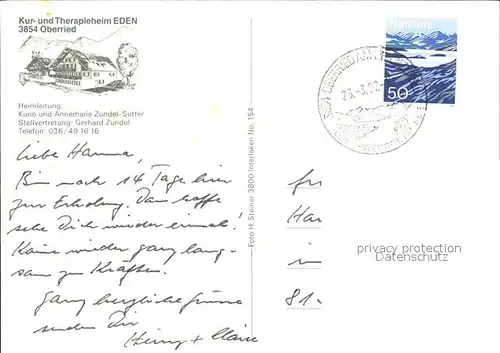 Kur- und Therapieheim EDEN
3854 Oberried
Heimleitung:
Kuno und Annemarie Zundel-Sutter
Stellvertretung: Gerhard Zundel
Telefon: 036/49 16 16
Liebe Hanna,
Bin noch 14 Tage hier
zur Erholung. Dann hoffe
sehe Dich wieder einmal!
Käme wieder ganz lang-
sam zu Kräften.
Ganz herzliche Grüsse
senden Dir
Heiny + Claire
Foto H. Steiner 3800 Interlaken No. 154
Helvetia
50
3854 OBERRIED AM
Har
in
81.
privacy protection
Datenschutz